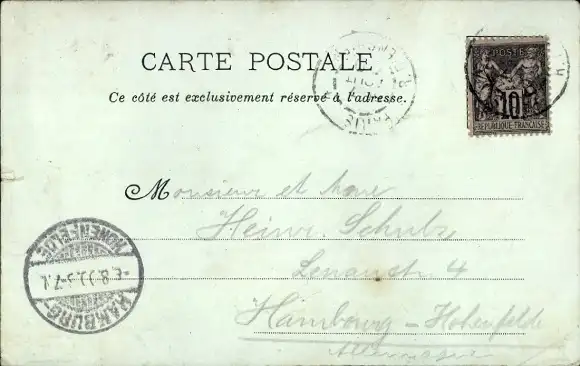 CARTE POSTALE
Ce côté est exclusivement réservé à l'adresse.
POSTE
10
RÉPUBLIQUE FRANÇAISE
PARIS
Monsieur et
Heinr. Schulze
Lenaustr. 4
Hambourg – Hohenfelde
Allemagne
HAMBURG
HOHENFELDE